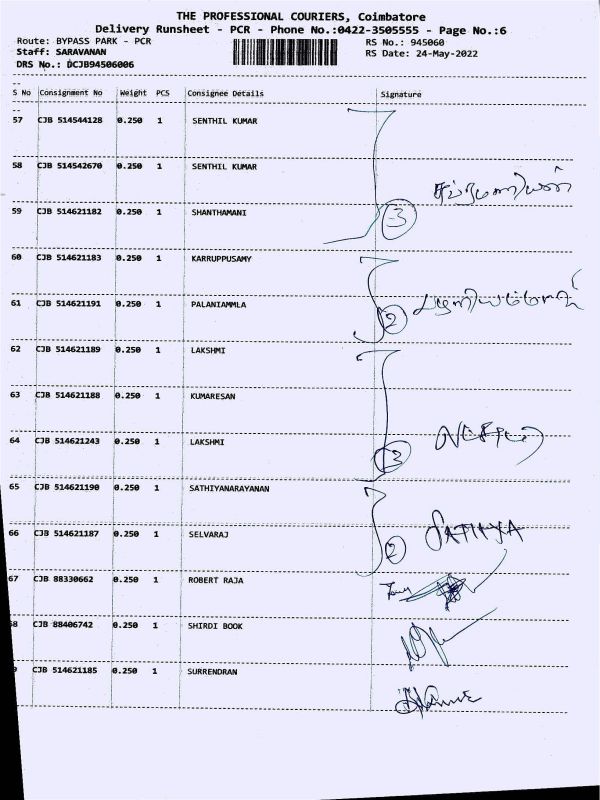 THE PROFESSIONAL COURIERS, Coimbatore
Delivery Runsheet - PCR - Phone No.:0422-3505555 - Page No.:6
Route: BYPASS PARK - PCR
RS No.: 945060
Staff: SARAVANAN
RS Date: 24-May-2022
DRS No.: DCJB94506006
S No Consignment No Weight PCS Consignee Details Signature
57 CJB 514544128 0.250 1 SENTHIL KUMAR
58 CJB 514542670 0.250 1 SENTHIL KUMAR
59 CJB 514621182 0.250 1 SHANTHAMANI 3
60 CJB 514621183 0.250 1 KARRUPPUSAMY
61 CJB 514621191 0.250 1 PALANIAMMLA 2
62 CJB 514621189 0.250 1 LAKSHMI
63 CJB 514621188 0.250 1 KUMARESAN
64 CJB 514621243 0.250 1 LAKSHMI 3
65 CJB 514621190 0.250 1 SATHIYANARAYANAN
66 CJB 514621187 0.250 1 SELVARAJ 2 SATHYA
67 CJB 88330662 0.250 1 ROBERT RAJA
8 CJB 88406742 0.250 1 SHIRDI BOOK
CJB 514621185 0.250 1 SURRENDRAN